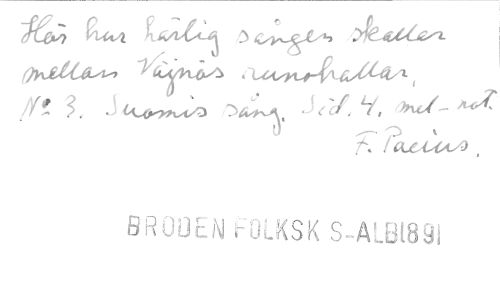 Hör hur härlig sången skallar
mellan Väjnös runohallar,
No 3. Suomis sång. Sid. 4. mel-not.
F. Pacius.
BRODEN FOLKSK S-ALB1891